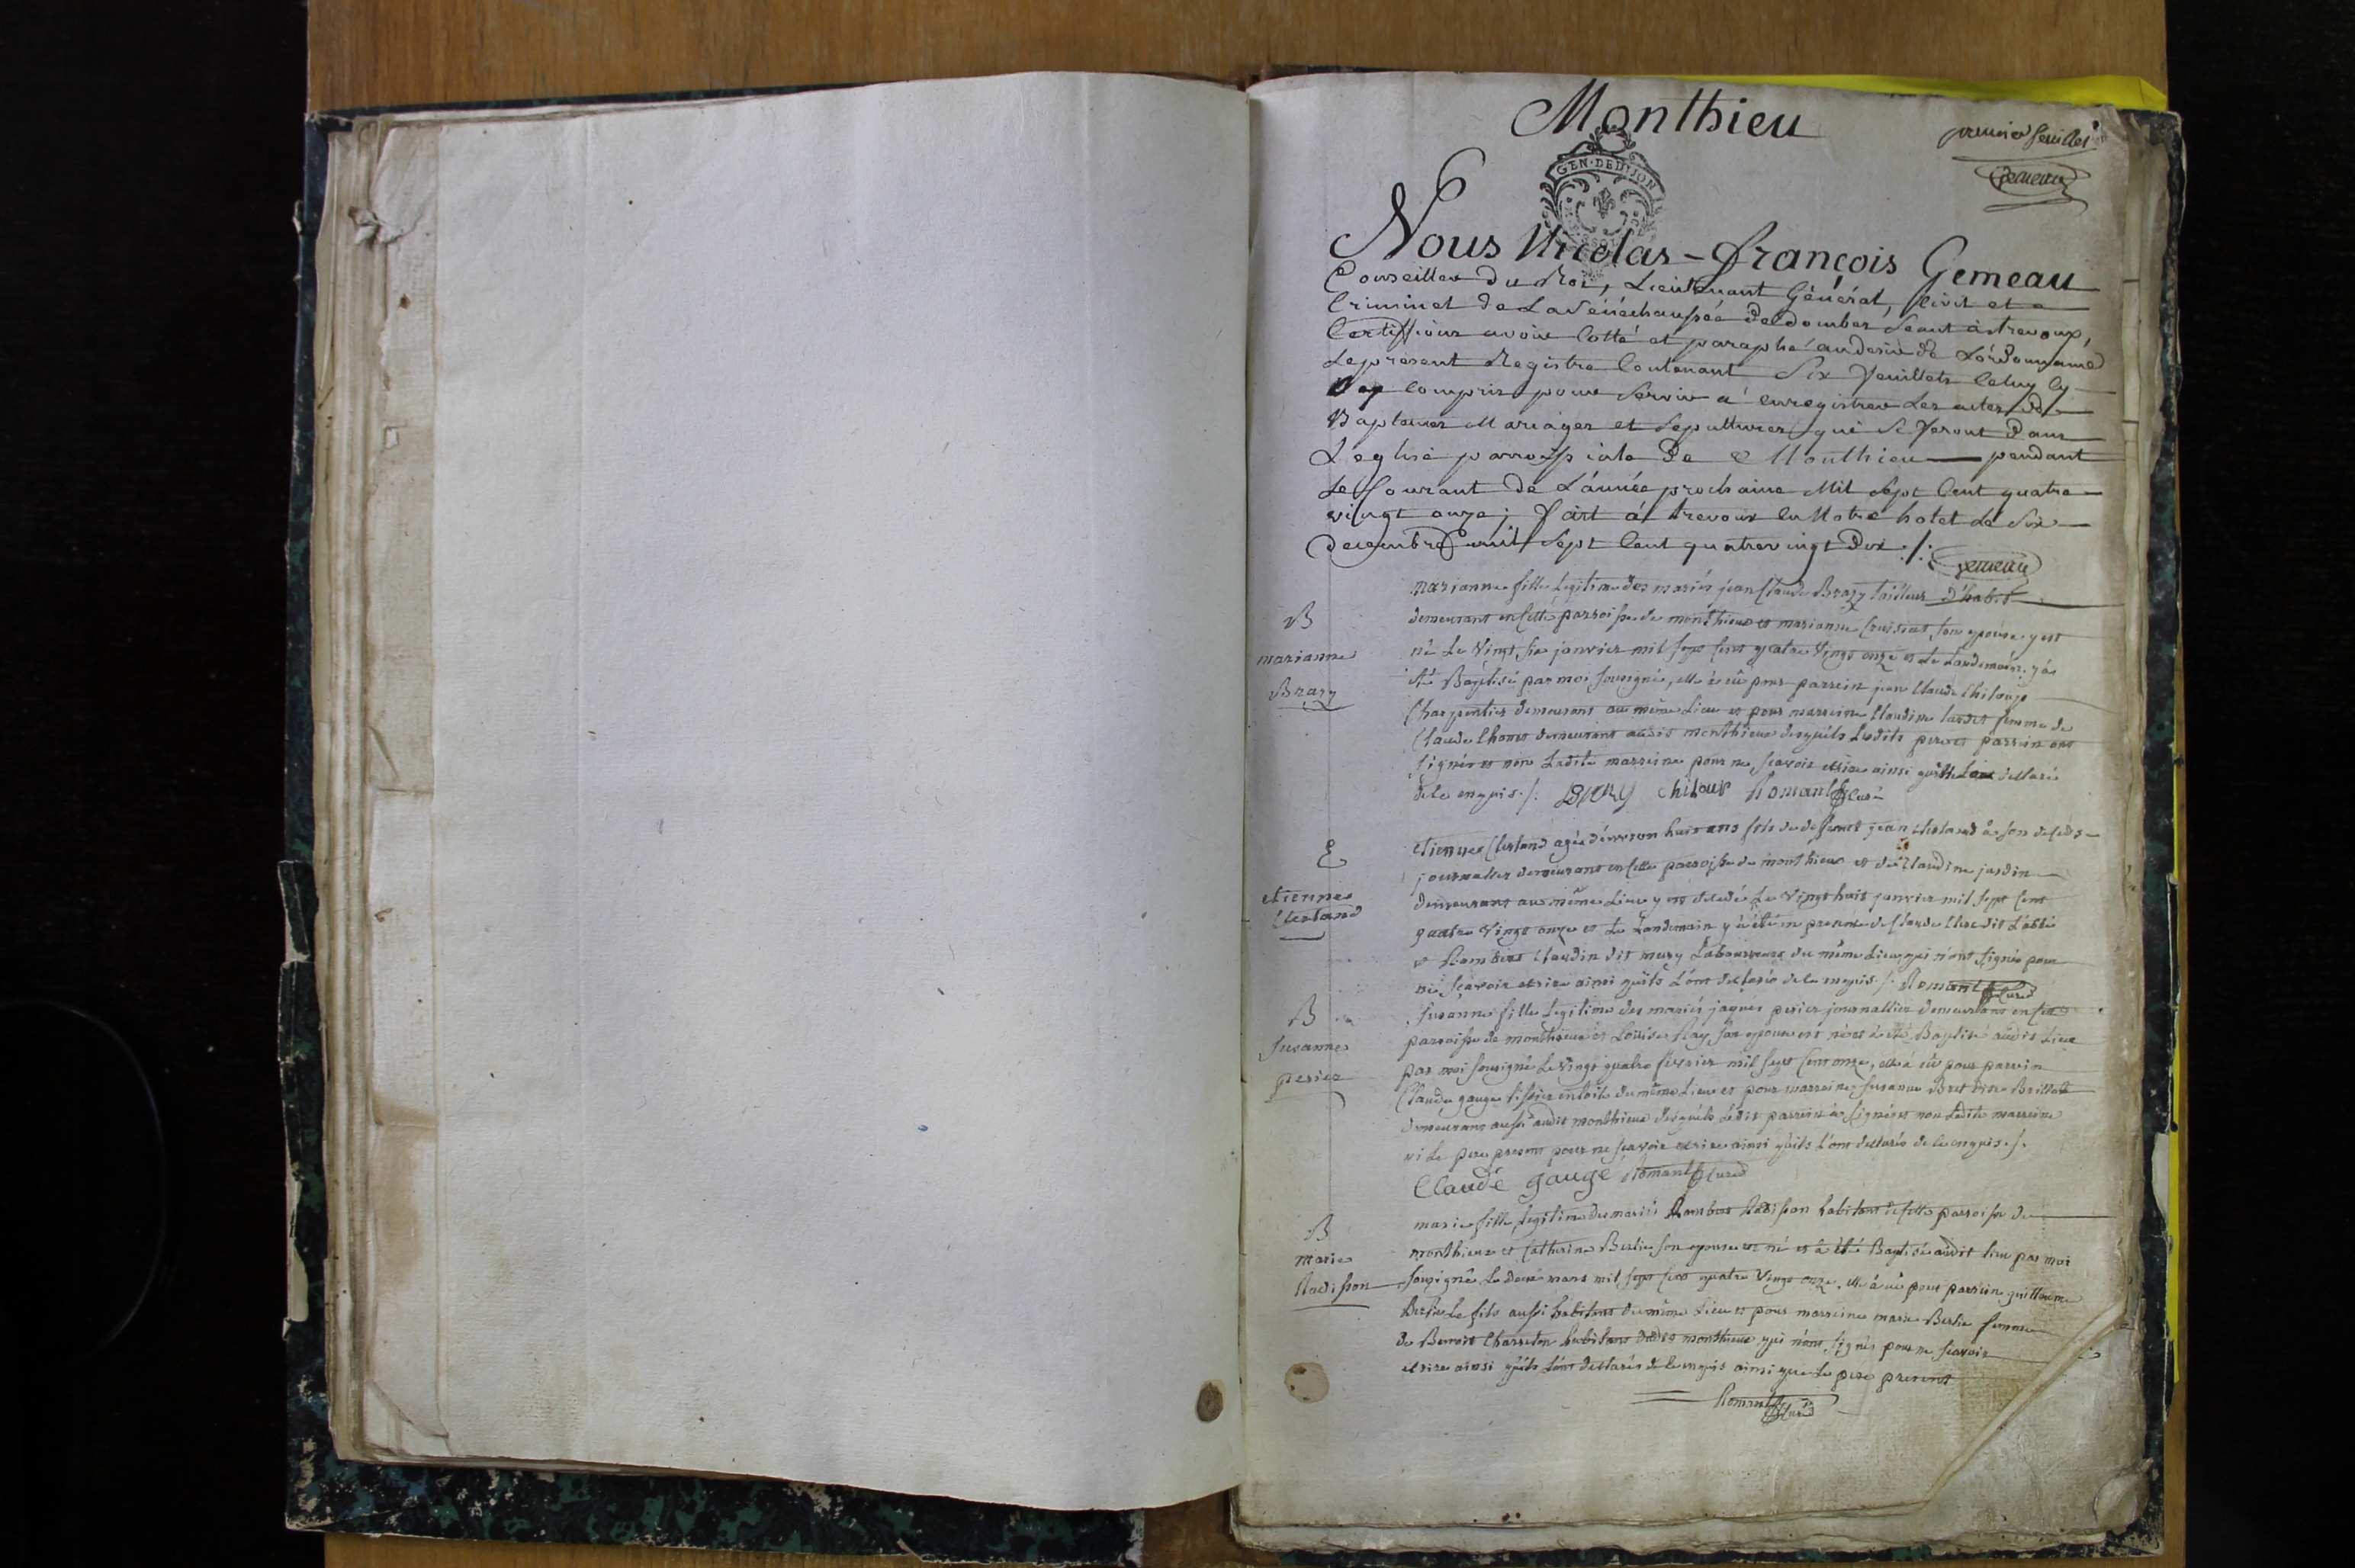 Monthieu
premier feuillet
Gemeau
GEN·DE DIJON
Nous Nicolas-François Gemeau
Conseiller Du Roi, Lieutenant Général, Civil et
Criminel de La Sénéchaussée De Dombes Seant à trevoux,
Certiffions avoir Cotté et paraphé au desir de L'órdonnance
Le present Registre Contenant Six feuillets Celuy Cy
Compris pour Servir a' enregistrer Les actes de
Baptemes Mariages et Sepultures qui Se feront Dans
L'eglise parroissiale De Monthieu pendant
Le Courant De L'année prochaine Mil Sept Cent quatre
vingt onze; Fait á trevoux En Notre hotel Le Six
Decembre mil Sept Cent quatrevingt Dix ./.
Gemeau
marianne fille Legitime des mariés jean Claude Brazy tailleur d'habit
B
demeurant en Cette parroisse de monthieux et marianne son epouse y est
marianne
né Le Vingt six janvier mil sept Cent quatre Vingt onze et Le Landemain y á
Brazy
été Baptisé par moi sousigné, elle á eû pour parrein jean Claude Chiloup
Charpentier demeurant au même Lieu et pour marreine Claudine femme de
Claude demeurant audit monthieux desquels Ledits pere et parrein ont
signés et non Ladite marreine pour ne sçavoir ecrire ainsi qu'elle declaré
de le enquis ./. BRAZY Chiloup Romant Curé
E
etienne Cleeland agée d'environ huit ans fils de deffunt jean
journallier demeurant en Cette parroisse de monthieux et de Claudine jardin
etienne
demeurant au même Lieu y est Le Vingt huit janvier mil sept Cent
quatre Vingt onze et Le Landemain y á été en presence de Claude dit L'abbé
et Rambert Claudin dit mury Laboureurs du même Lieu qui n'ont signés pour
ne sçavoir ecrire ainsi qu'ils L'ont declaré de le enquis ./. Romant Curé
B
susanne fille Legitime des mariés jaques perier journallier demeurant en Cette
susanne
parroisse de monthieux et Loüise Ray son epouse est né et á été Baptisé audit Lieu
perier
par moi sousigné Le Vingt quatre fevrier mil sept Cent onze, elle á eû pour parrein
Claude gauge tissier en toile du même Lieu et pour marreine susanne
demeurant aussi audit monthieux desquels Ledit parrein á signé et non Ladite marreine
ni Le pere present pour ne sçavoir ecrire ainsi qu'ils L'ont declaré de le enquis ./.
Claude gauge Romant Curé
B
marie fille Legitime des mariés Rambert Radisson habitant de Cette parroisse de
marie
monthieux et Catherine Berlie son epouse est né et á été Baptisé audit lieu par moi
Radisson
sousigné Le deux mars mil sept Cent quatre Vingt onze, elle á eû pour parrein guillaume
Berlie Le fils aussi habitant du même Lieu et pour marreine marie Berlie femme
de Benoit Charreton habitant dudit monthieux qui n'ont signés pour ne sçavoir
ecrire ainsi qu'ils L'ont declarés de le enquis ainsi que Le pere present
Romant Curé